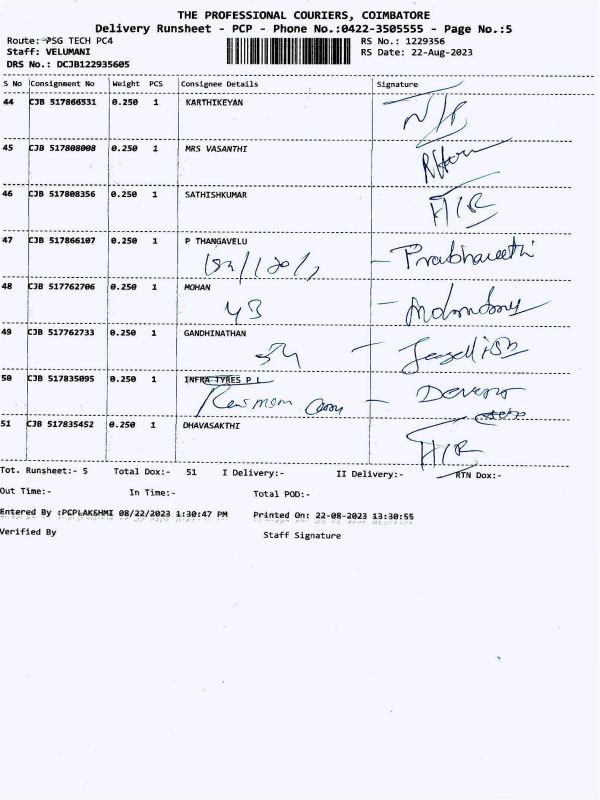 THE PROFESSIONAL COURIERS, COIMBATORE
Delivery Runsheet - PCP - Phone No.:0422-3505555 - Page No.:5
Route: PSG TECH PC4 RS No.: 1229356
Staff: VELUMANI RS Date: 22-Aug-2023
DRS No.: DCJB122935605
S No Consignment No Weight PCS Consignee Details Signature
44 CJB 517866531 0.250 1 KARTHIKEYAN
45 CJB 517808008 0.250 1 MRS VASANTHI
46 CJB 517808356 0.250 1 SATHISHKUMAR
47 CJB 517866107 0.250 1 P THANGAVELU
48 CJB 517762706 0.250 1 MOHAN
43
49 CJB 517762733 0.250 1 GANDHINATHAN
54
50 CJB 517835095 0.250 1 INFRA TYRES P L
51 CJB 517835452 0.250 1 DHAVASAKTHI
Tot. Runsheet:- 5 Total Dox:- 51 I Delivery:- II Delivery:- RTN Dox:-
Out Time:- In Time:- Total POD:-
Entered By :PCPLAKSHMI 08/22/2023 1:30:47 PM Printed On: 22-08-2023 13:30:55
Verified By Staff Signature